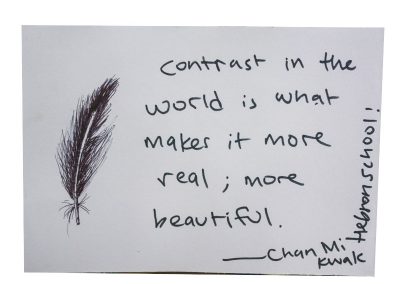 contrast in the
world is what
makes it more
real; more
beautiful.
—Chan Mi
Kwak
Hebronschool!